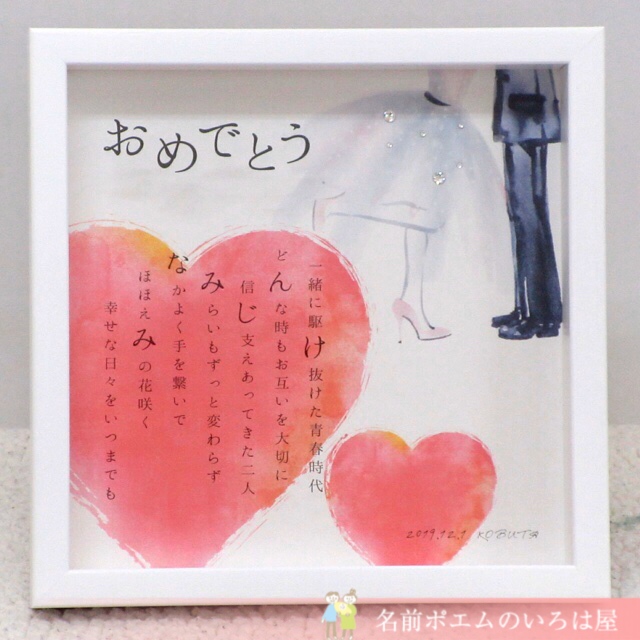 おめでとう
一緒に駆け抜けた青春時代
どんな時もお互いを大切に
信じ支えあってきた二人
みらいもずっと変わらず
なかよく手を繋いで
ほほえみの花咲く
幸せな日々をいつまでも
2019.12.1 KOBUTA
名前ポエムのいろは屋